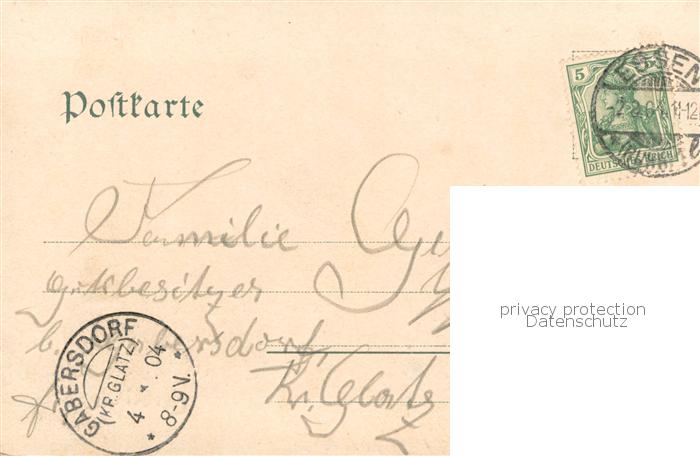 Postkarte
5
DEUTSCHES REICH
ESSEN
11-12
Familie
gutsbesitzer
b. Gabersdorf
Kr. Glatz
GABERSDORF
(KR. GLATZ)
4 . 04
* 8-9V. *
privacy protection
Datenschutz